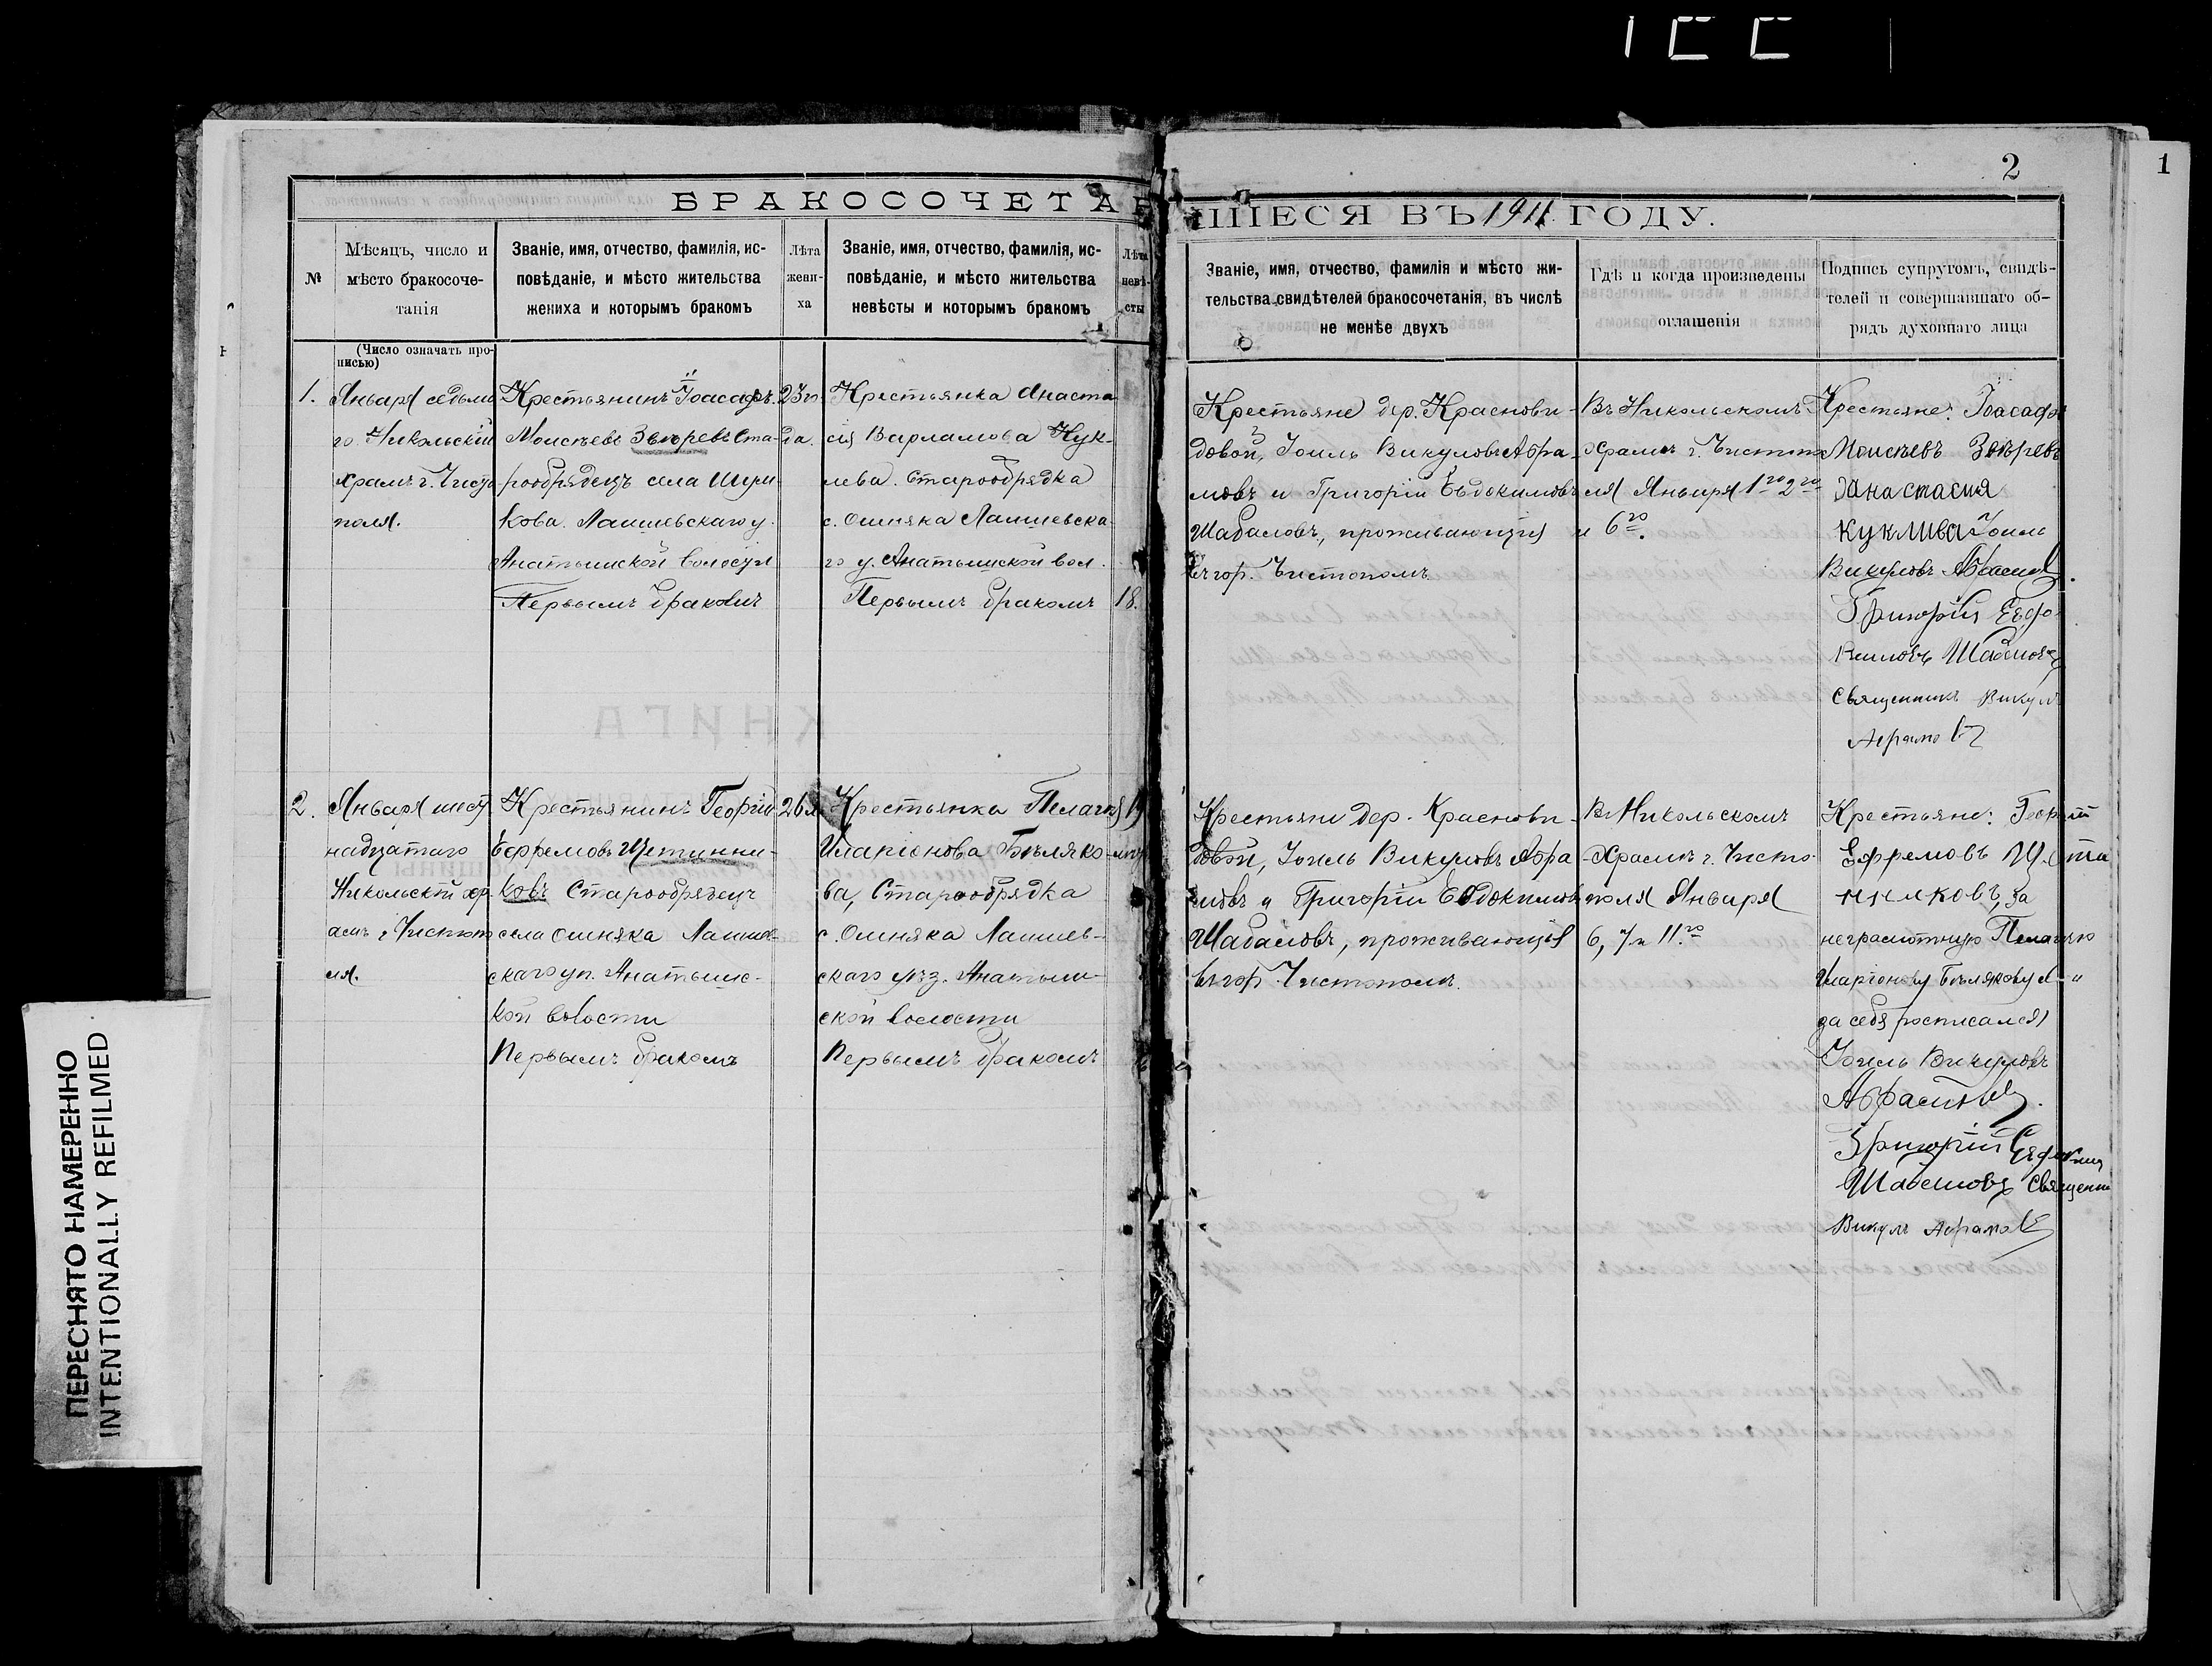 2
1
БРАКОСОЧЕТАВ
ШІЕСЯ ВЪ 1911 ГОДУ.
№
Мѣсяцъ, число и
мѣсто бракосоче-
танія
Званіе, имя, отчество, фамилія, ис-
повѣданіе, и мѣсто жительства
жениха и которымъ бракомъ
Лѣта
жени-
ха
Званіе, имя, отчество, фамилія, ис-
повѣданіе, и мѣсто жительства
невѣсты и которымъ бракомъ
Лѣта
невѣ-
сты
Званіе, имя, отчество, фамилія и мѣсто жи-
тельства свидѣтелей бракосочетанія, въ числѣ
не менѣе двухъ
Гдѣ и когда произведены
оглашенія
Подпись супруговъ, свидѣ-
телей и совершавшаго об-
рядъ духовнаго лица
(Число означать про-
писью)
1.
Января седьма
го Никольскій
храмъ г. Чисто
поля.
Крестьянинъ Іоасафъ
Моисѣевъ Звѣревъ Ста-
рообрядецъ села Шури
кова Лаишевскаго у.
Анатышской волости
Первымъ бракомъ
23 го
да.
Крестьянка Анаста
сія Варламова Кук-
лева. Старообрядка
с. Ошняка Лаишевска
го у. Анатышской вол.
Первымъ бракомъ
18.
Крестьяне дер. Краснови-
довой, Іоиль Викуловъ Абра
мовъ и Григорій Евдокимовъ
Шабаловъ, проживающія
въ гор. Чистополѣ.
Въ Никольскомъ
храмѣ г. Чистопо
ля Января 1го 2го
и 6го.
Крестьяне: Іоасафъ
Моисѣевъ Звѣревъ
Анастасия
Куклива Іоиль
Викуловъ Абрамовъ.
Григорій Евдо
кимовъ Шабаловъ
Священникъ Викулъ
Абрамовъ
2.
Января шест
надцатаго
Никольскій хр-
амъ г. Чистопо
ля.
Крестьянинъ Георгій
Ефремовъ Щетинни-
ковъ Старообрядецъ
села Ошняка Лаишев-
скаго уѣ. Анатышс-
кой волости
Первымъ бракомъ
26 л.
Крестьянка Пелагія
Иларіонова Бѣляко-
ва, Старообрядка
с. Ошняка Лаишев-
скаго уѣз. Анатыш-
ской волости
Первымъ бракомъ
19
Крестьяни дер. Краснови-
довой, Іоиль Викуловъ Абра
мовъ и Григорій Евдокимовъ
Шабаловъ, проживающія
въ гор. Чистополѣ.
Въ Никольскомъ
храмѣ г. Чисто-
поля Января
6, 7 и 11.го
Крестьяне: Георгій
Ефремовъ Щети
нниковъ, за
неграмотную Пелагею
Иларіонову Бѣлякову и
за себя росписался
Іоиль Викуловъ
Абрамовъ.
Григорій Евдоким
Шабаловъ Священни
Викулъ Абрамовъ
КНИГА
ПЕРЕСНЯТО НАМЕРЕННО
INTENTIONALLY REFILMED